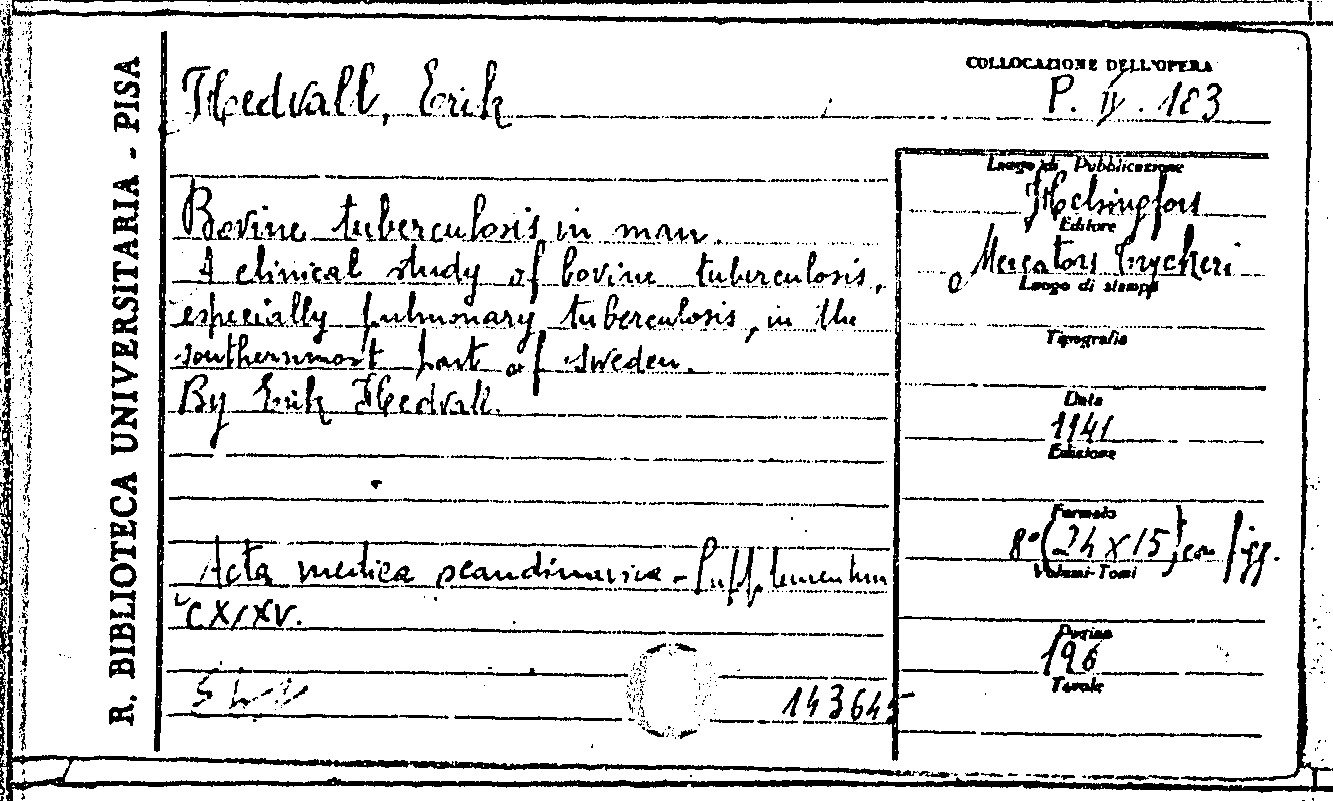 R. BIBLIOTECA UNIVERSITARIA - PISA
COLLOCAZIONE DELL'OPERA
Hedvall, Erik
P. IV. 183
Luogo di Pubblicazione
Helsingfors
Editore
Bovine tuberculosis in man.
Mercators Tryckeri
A clinical study of bovine tuberculosis,
Luogo di stampa
especially pulmonary tuberculosis, in the
Tipografia
southernmost part of Sweden.
Data
By Erik Hedvall.
1941
Edizione
Formato
8° (24 x 15) con figg.
Volumi-Tomi
Acta medica scandinavica - Supplementum
CXIXV.
Pagine
196
Tavole
143645